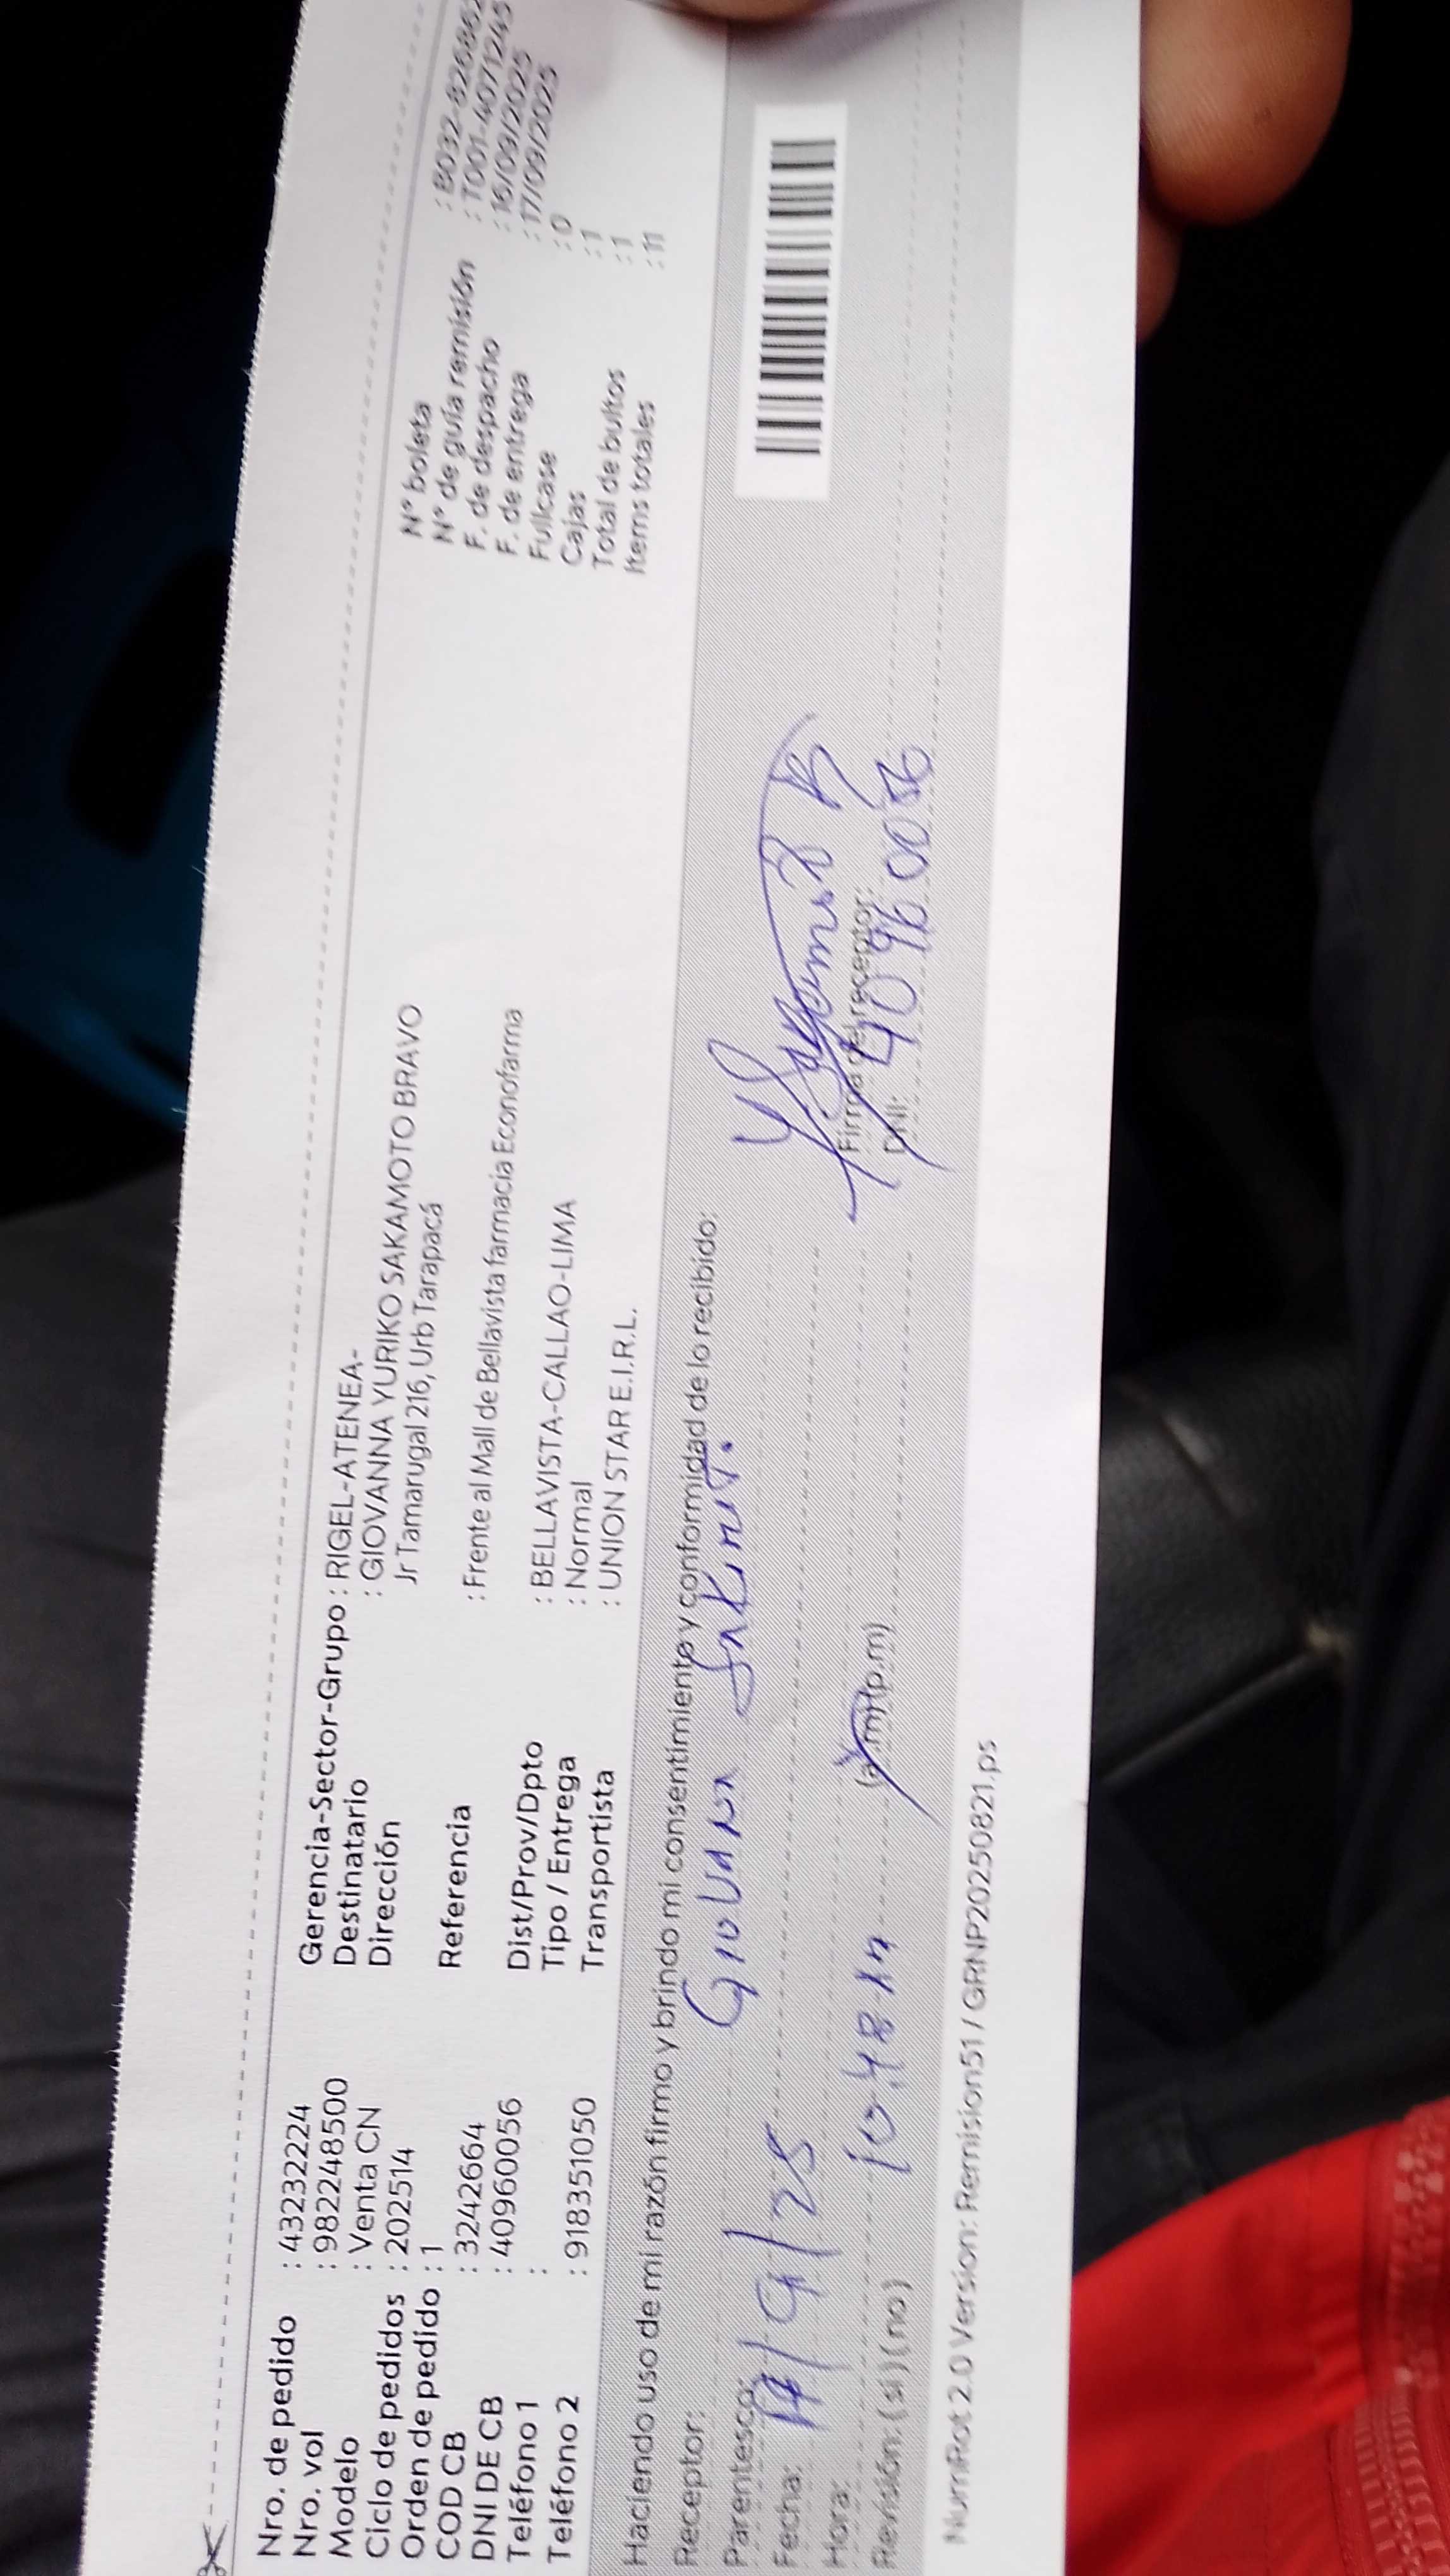 Nro. de pedido : 43232224
Nro. vol : 982248500
Modelo : Venta CN
Ciclo de pedidos : 202514
Orden de pedido : 1
COD CB : 3242664
DNI DE CB : 40960056
Teléfono 1 :
Teléfono 2 : 918351050
Gerencia-Sector-Grupo : RIGEL-ATENEA-
Destinatario : GIOVANNA YURIKO SAKAMOTO BRAVO
Dirección Jr Tamarugal 216, Urb Tarapacá
Referencia : Frente al Mall de Bellavista farmacia Econofarma
Dist/Prov/Dpto : BELLAVISTA-CALLAO-LIMA
Tipo / Entrega : Normal
Transportista : UNION STAR E.I.R.L.
N° boleta : B032-826862
N° de guía remisión : T001-40771245
F. de despacho : 16/09/2025
F. de entrega : 17/09/2025
Fullcase : 0
Cajas : 1
Total de bultos : 1
Items totales : 11
Haciendo uso de mi razón firmo y brindo mi consentimiento y conformidad de lo recibido:
Receptor: Giovanna
Parentesco:
Fecha: 17/9/25
Hora: 10:48 (a.m)(p.m)
Revisión: (si) (no)
Firma del receptor:
DNI: 40960056
NumRot 2.0 Version: Remision51 / GRNP20250821.ps